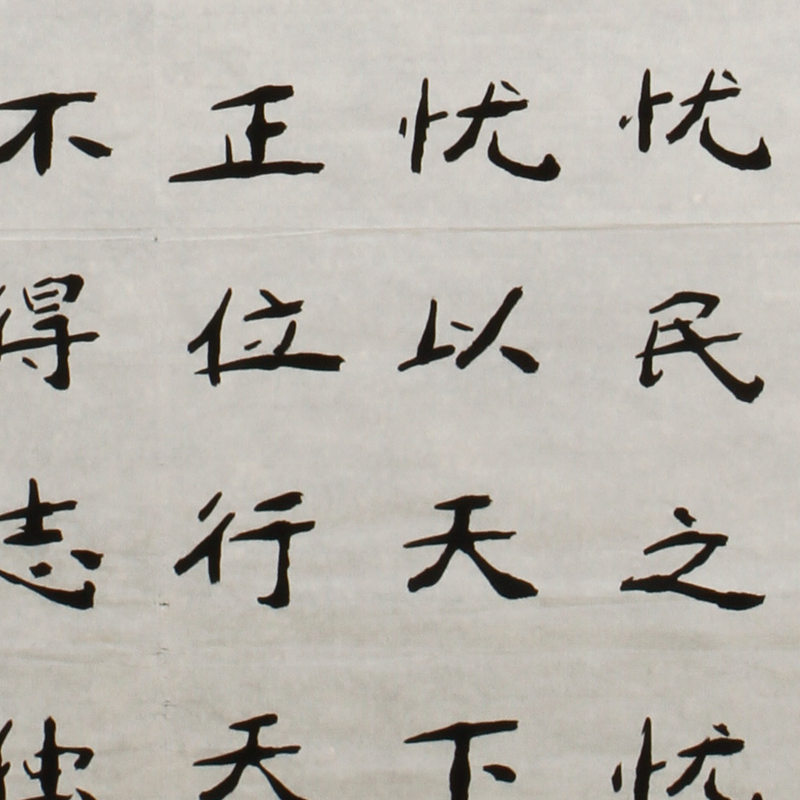 忧民之忧
忧以天下
正位行天
不得志独